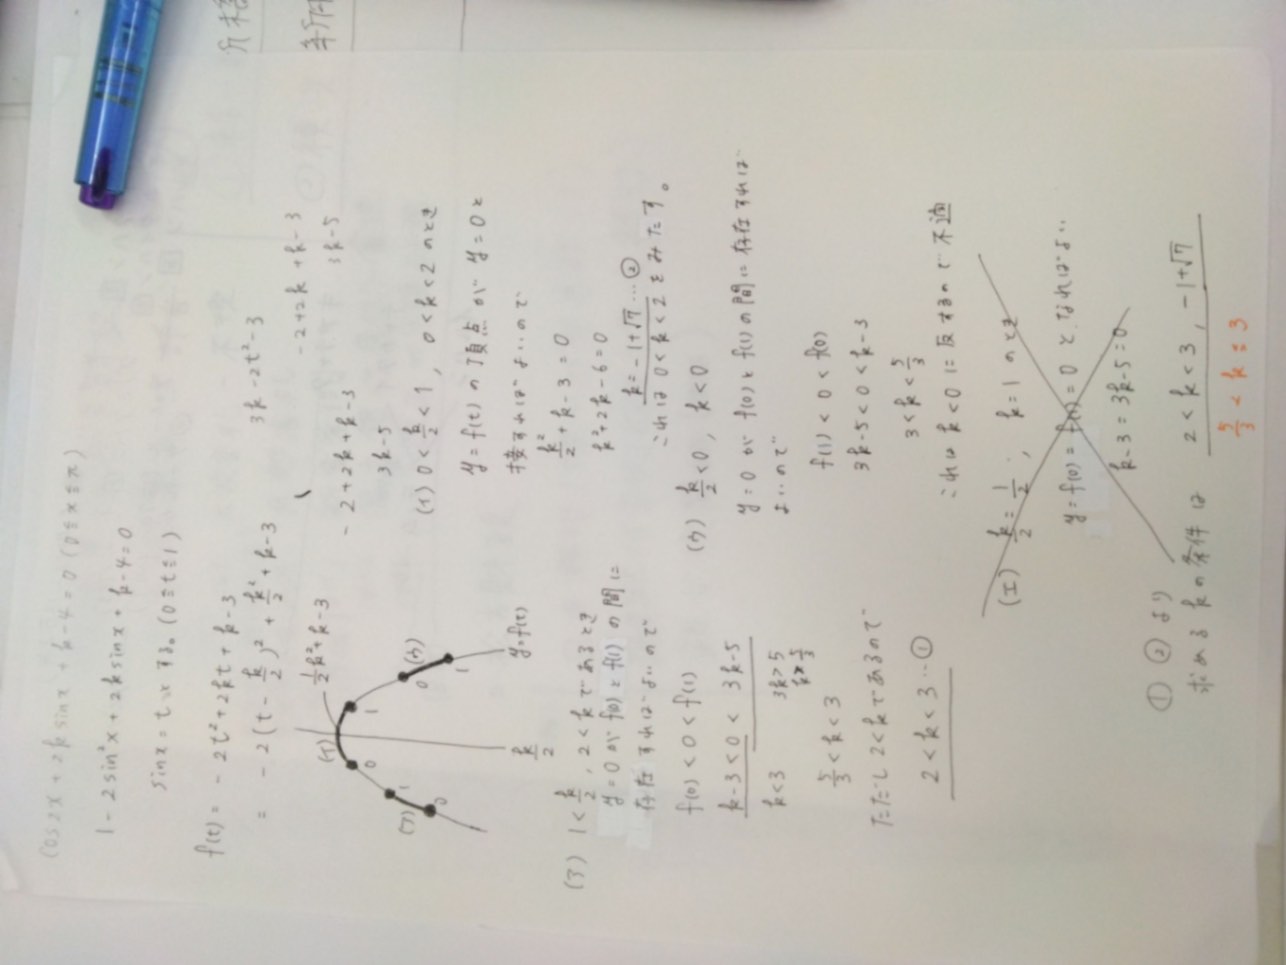 cos2x + 2k sinx + k - 4 = 0 (0≦x≦π)
1 - 2sin²x + 2k sinx + k - 4 = 0
sinx = t とする。(0≦t≦1)
f(t) = -2t² + 2kt + k - 3
= -2(t - k/2)² + k²/2 + k - 3
3k - 2t² - 3
-2 + 2k + k - 3
3k - 5
-2 + 2k + k - 3
3k - 5
1/2k² + k - 3
(イ)
(ア)
1
0
0
1
0
(ウ)
1
k/2
y=f(t)
(ア) 1 < k/2, 2 < k であるとき
y=0 が f(0) と f(1) の間に
存在すればよいので
f(0) < 0 < f(1)
k-3 < 0 < 3k-5
k < 3
3k > 5
k > 5/3
5/3 < k < 3
ただし 2 < k であるので
2 < k < 3 … ①
(イ) 0 < k/2 < 1, 0 < k < 2 のとき
y = f(t) の頂点が y = 0 と
接すればよいので
k²/2 + k - 3 = 0
k² + 2k - 6 = 0
k = -1+√7 … ②
これは 0 < k < 2 をみたす。
(ウ) k/2 < 0, k < 0
y = 0 が f(0) と f(1) の間に存在すれば
よいので
f(1) < 0 < f(0)
3k-5 < 0 < k-3
3 < k < 5/3
これは k < 0 に反するので不適
(エ) k/2 = 1/2, k = 1 のとき
y = f(0) = f(1) = 0 となればよい
k-3 = 3k-5 = 0
① ② より
求める k の条件は
2 < k < 3, -1+√7
5/3 < k ≦ 3